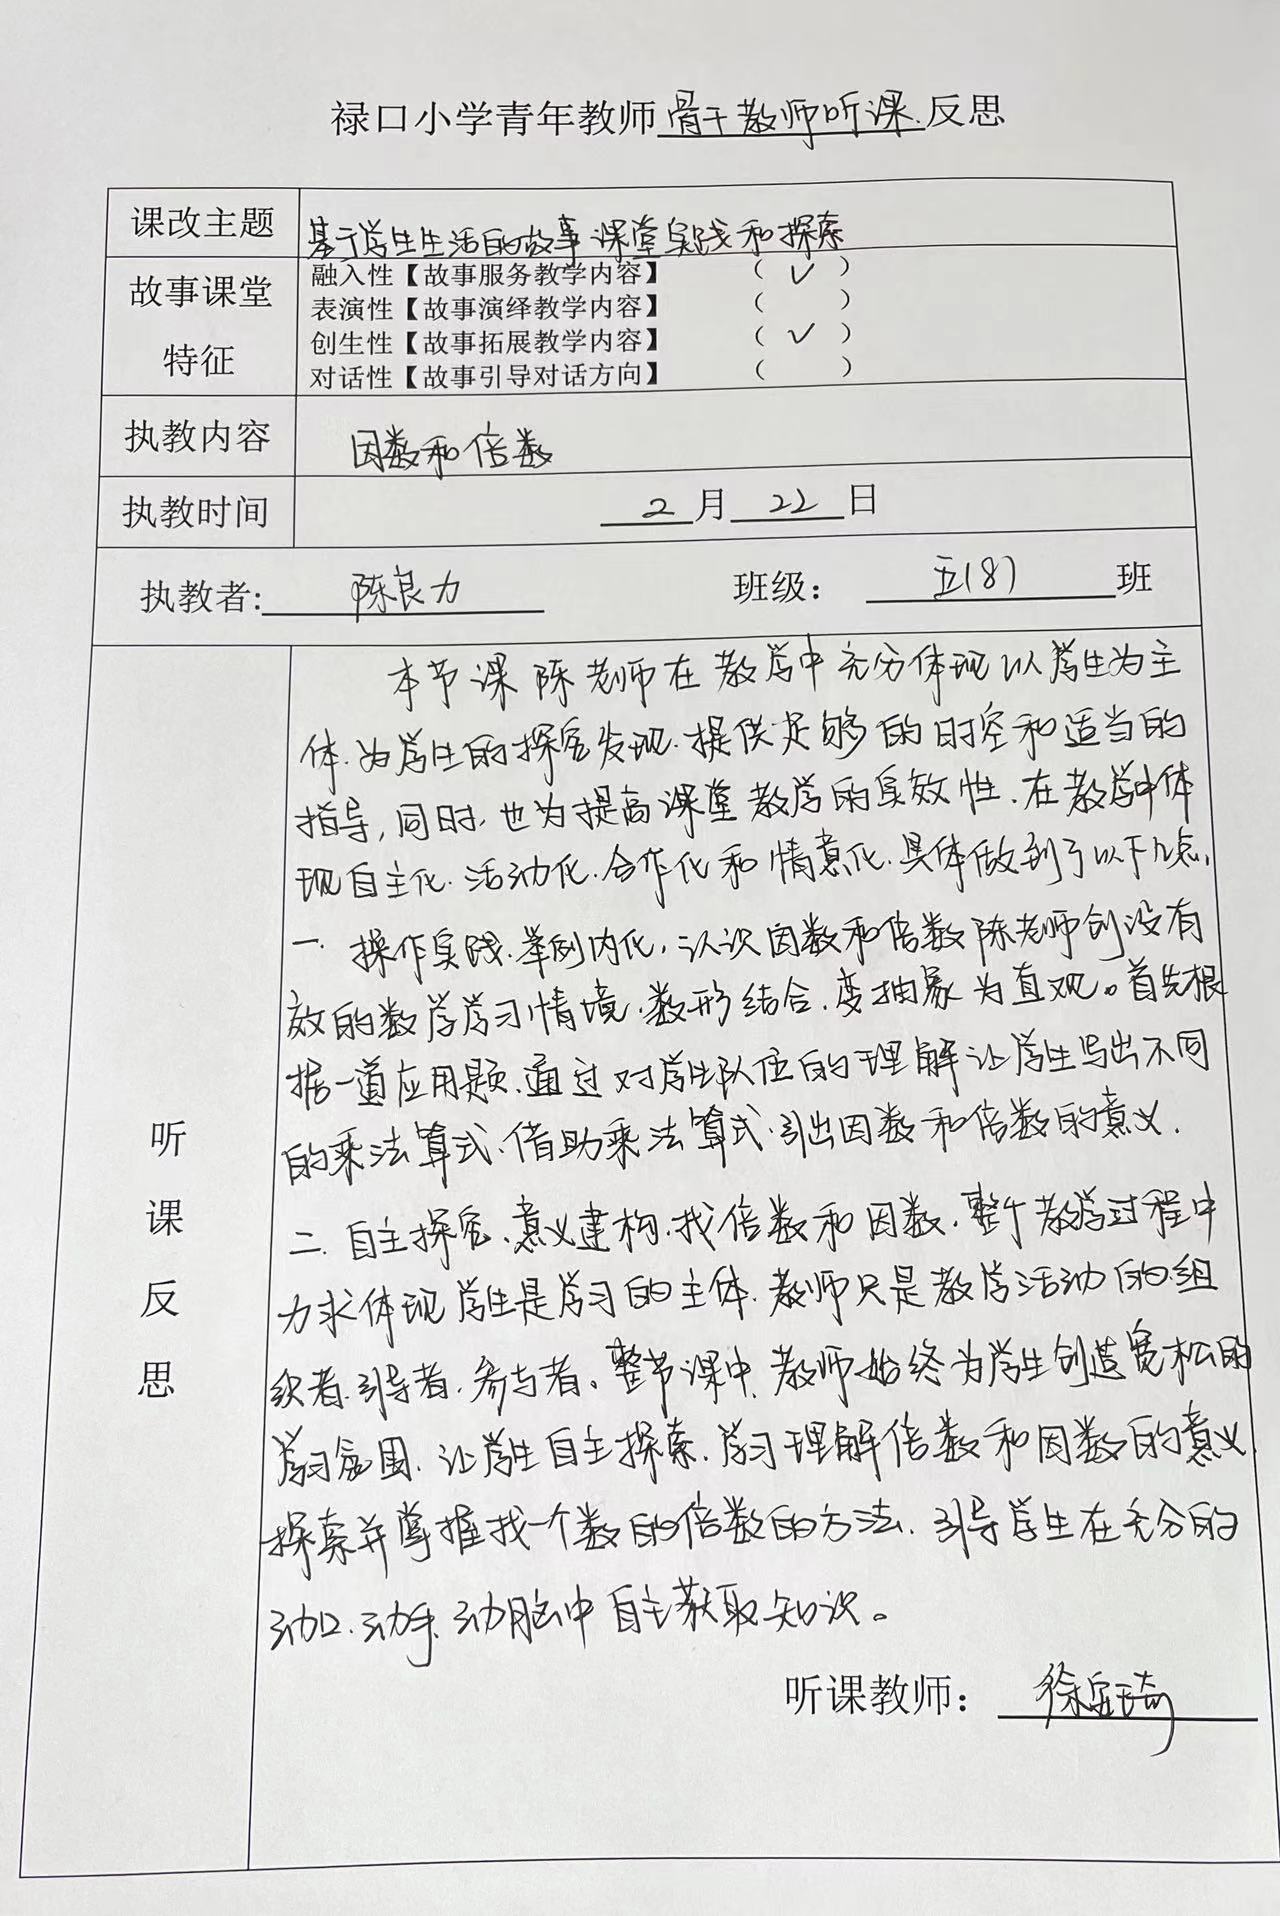 禄口小学青年教师骨干教师听课反思
课改主题 基于学生生活的故事课堂实践和探索
故事课堂特征
融入性【故事服务教学内容】 （ ✓ ）
表演性【故事演绎教学内容】 （ ）
创生性【故事拓展教学内容】 （ ✓ ）
对话性【故事引导对话方向】 （ ）
执教内容 因数和倍数
执教时间 2月22日
执教者: 陈良力 班级: 五(8)班
听课反思
本节课陈老师在教学中充分体现以学生为主
体.为学生的探究发现.提供足够的时空和适当的
指导,同时,也为提高课堂教学的实效性.在教学中体
现自主化.活动化.合作化和情意化.具体做到了以下几点,
一.操作实践.举例内化,认识因数和倍数陈老师创设有
效的数学学习情境.数形结合.变抽象为直观。首先根
据一道应用题.通过对学生队伍的理解让学生写出不同
的乘法算式.借助乘法算式.引出因数和倍数的意义.
二.自主探究.意义建构.找倍数和因数.整个教学过程中
力求体现学生是学习的主体.教师只是教学活动的组
织者.引导者.参与者。整节课中.教师始终为学生创造宽松的
学习氛围.让学生自主探索.学习理解倍数和因数的意义.
探索并掌握找一个数的倍数的方法.引导学生在充分的
动口.动手.动脑中自主获取知识。
听课教师: 徐